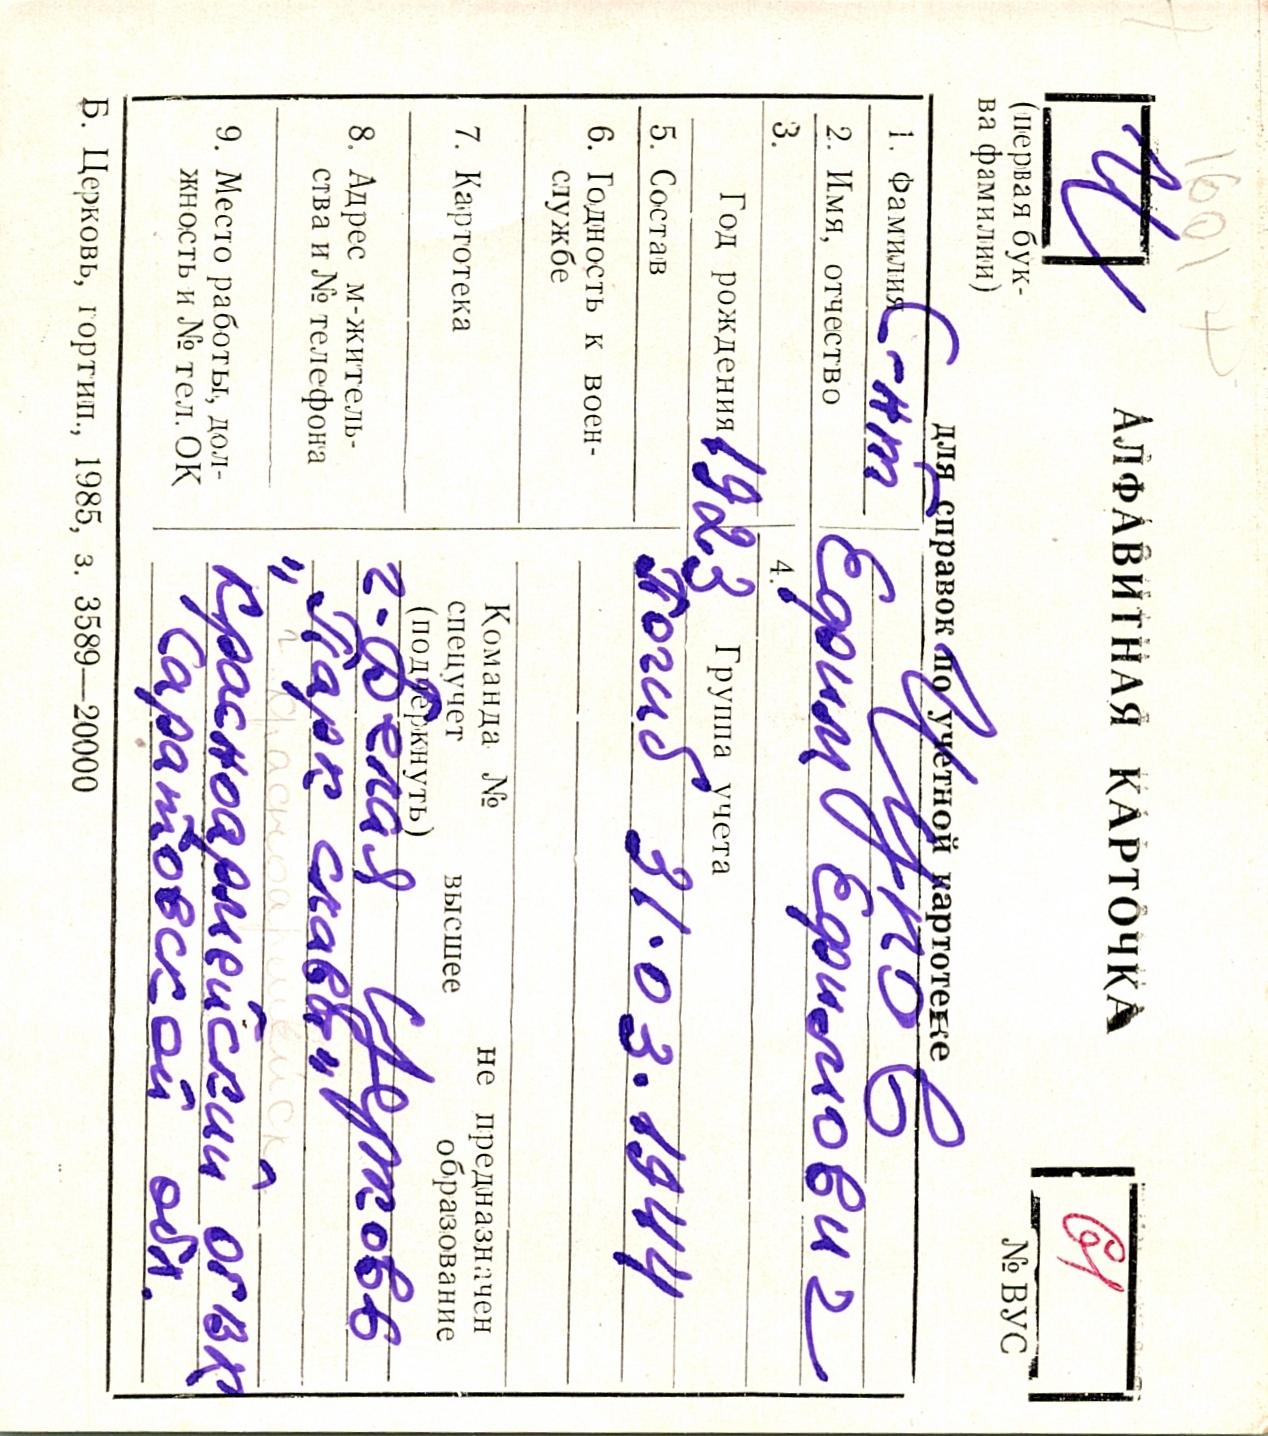 1601 +
АЛФАВИТНАЯ КАРТОЧКА
Ц
(первая бук-
ва фамилии)
для справок по учетной картотеке
61
№ ВУС
1. Фамилия С-нт Цуков
2. Имя, отчество Ефим Ефимович
3. Год рождения 1923
4. Группа учета
5. Состав Погиб 31.03.1944
6. Годность к воен-
службе
7. Картотека
Команда №
спецучет
(подчеркнуть)
не предназначен
высшее
образование
8. Адрес м-житель-
ства и № телефона
г. Белая Церковь
„Парк славы"
9. Место работы, дол-
жность и № тел. ОК
Красноармейский ОГВК
Саратовской обл.
Б. Церковь, гортип., 1985, з. 3589—20000